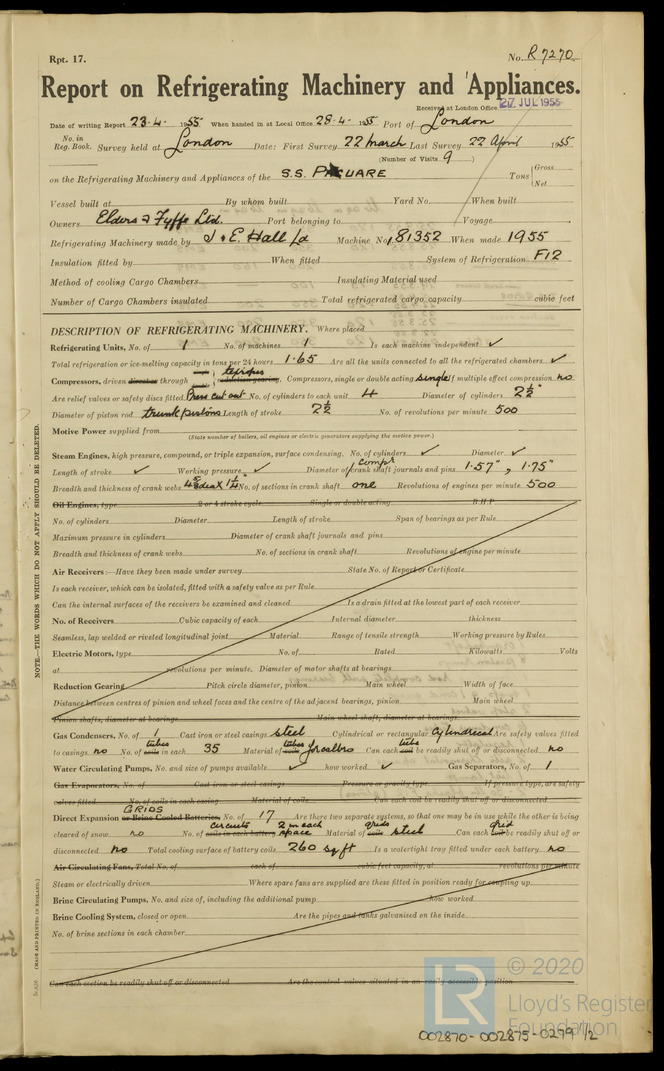 Rpt. 17. No. R 7270
Report on Refrigerating Machinery and Appliances.
Received at London Office 27 JUL 1955
Date of writing Report 23-4- 1955 When handed in at Local Office 28-4- 1955 Port of London
No. in Reg. Book. Survey held at London Date: First Survey 22 March Last Survey 22 April 1955
(Number of Visits 9 )
on the Refrigerating Machinery and Appliances of the S.S. PACUARE Tons Gross Net
Vessel built at By whom built Yard No. When built
Owners Elders & Fyffe Ltd. Port belonging to Voyage
Refrigerating Machinery made by J & E. Hall Ld Machine No. 81352 When made 1955
Insulation fitted by When fitted System of Refrigeration F12
Method of cooling Cargo Chambers Insulating Material used
Number of Cargo Chambers insulated Total refrigerated cargo capacity cubic feet
DESCRIPTION OF REFRIGERATING MACHINERY. Where placed
Refrigerating Units, No. of 1 No. of machines 1 Is each machine independent ✓
Total refrigeration or ice-melting capacity in tons per 24 hours 1.65 Are all the units connected to all the refrigerated chambers ✓
Compressors, driven direct or through reduction gearing. Compressors, single or double acting single If multiple effect compression no
Are relief valves or safety discs fitted Press cut out No. of cylinders to each unit 4 Diameter of cylinders 2½"
Diameter of piston rod trunk pistons Length of stroke 2½ No. of revolutions per minute 500
Motive Power supplied from
(State number of boilers, oil engines or electric generators supplying the motive power.)
Steam Engines, high pressure, compound, or triple expansion, surface condensing. No. of cylinders ✓ Diameter ✓
Length of stroke ✓ Working pressure ✓ Diameter of compr crank shaft journals and pins 1.57", 1.75"
Breadth and thickness of crank webs No. of sections in crank shaft one Revolutions of engines per minute 500
Oil Engines, type 2 or 4 stroke cycle Single or double acting B.H.P.
No. of cylinders Diameter Length of stroke Span of bearings as per Rule
Maximum pressure in cylinders Diameter of crank shaft journals and pins
Breadth and thickness of crank webs No. of sections in crank shaft Revolutions of engine per minute
Air Receivers:—Have they been made under survey State No. of Report or Certificate
Is each receiver, which can be isolated, fitted with a safety valve as per Rule
Can the internal surfaces of the receivers be examined and cleaned Is a drain fitted at the lowest part of each receiver
No. of Receivers Cubic capacity of each Internal diameter thickness
Seamless, lap welded or riveted longitudinal joint Material Range of tensile strength Working pressure by Rules
Electric Motors, type No. of Rated Kilowatts Volts
at revolutions per minute. Diameter of motor shafts at bearings
Reduction Gearing Pitch circle diameter, pinion Main wheel Width of face
Distance between centres of pinion and wheel faces and the centre of the adjacent bearings, pinion Main wheel
Pinion shafts, diameter at bearings Main wheel shaft, diameter at bearings
Gas Condensers, No. of 1 Cast iron or steel casings steel Cylindrical or rectangular cylindrical Are safety valves fitted
to casings no No. of coils tubes in each 35 Material of coils tubes Can each coil tube be readily shut off or disconnected no
Water Circulating Pumps, No. and size of pumps available ✓ how worked ✓ Gas Separators, No. of 1
Gas Evaporators, No. of Cast iron or steel casings Pressure or gravity type If pressure type, are safety
valves fitted No. of coils in each casing Material of coils Can each coil be readily shut off or disconnected
Direct Expansion GRIDS or Brine Cooled Batteries, No. of 17 Are there two separate systems, so that one may be in use while the other is being
cleared of snow no No. of circuits coils in each battery 2 in each space Material of coils grids steel Can each coil grid be readily shut off or
disconnected no Total cooling surface of battery coils 260 sq ft Is a watertight tray fitted under each battery no
Air Circulating Fans, Total No. of each of cubic feet capacity, at revolutions per minute
Steam or electrically driven Where spare fans are supplied are these fitted in position ready for coupling up
Brine Circulating Pumps, No. and size of, including the additional pump how worked
Brine Cooling System, closed or open Are the pipes and tanks galvanised on the inside
No. of brine sections in each chamber
Can each section be readily shut off or disconnected Are the control valves situated in an easily accessible position
NOTE.—THE WORDS WHICH DO NOT APPLY SHOULD BE DELETED.
(MADE AND PRINTED IN ENGLAND.)
LR © 2020
Lloyd's Register
Foundation
002870-002875-0299 1/2